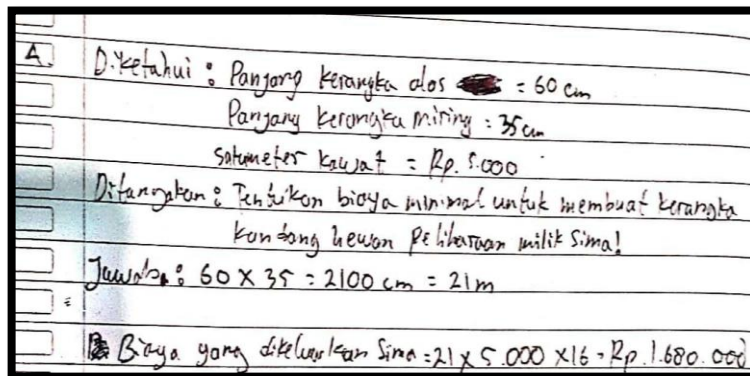 A. Diketahui : Panjang kerangka alas = 60 cm
Panjang kerangka miring = 35 cm
satu meter kawat = Rp. 5.000
Ditanyakan : Tentukan biaya minimal untuk membuat kerangka
kandang hewan peliharaan milik Sima!
Jawaban : 60 x 35 = 2100 cm = 21 m
Biaya yang dikeluarkan Sima = 21 x 5.000 x 16 = Rp. 1.680.000